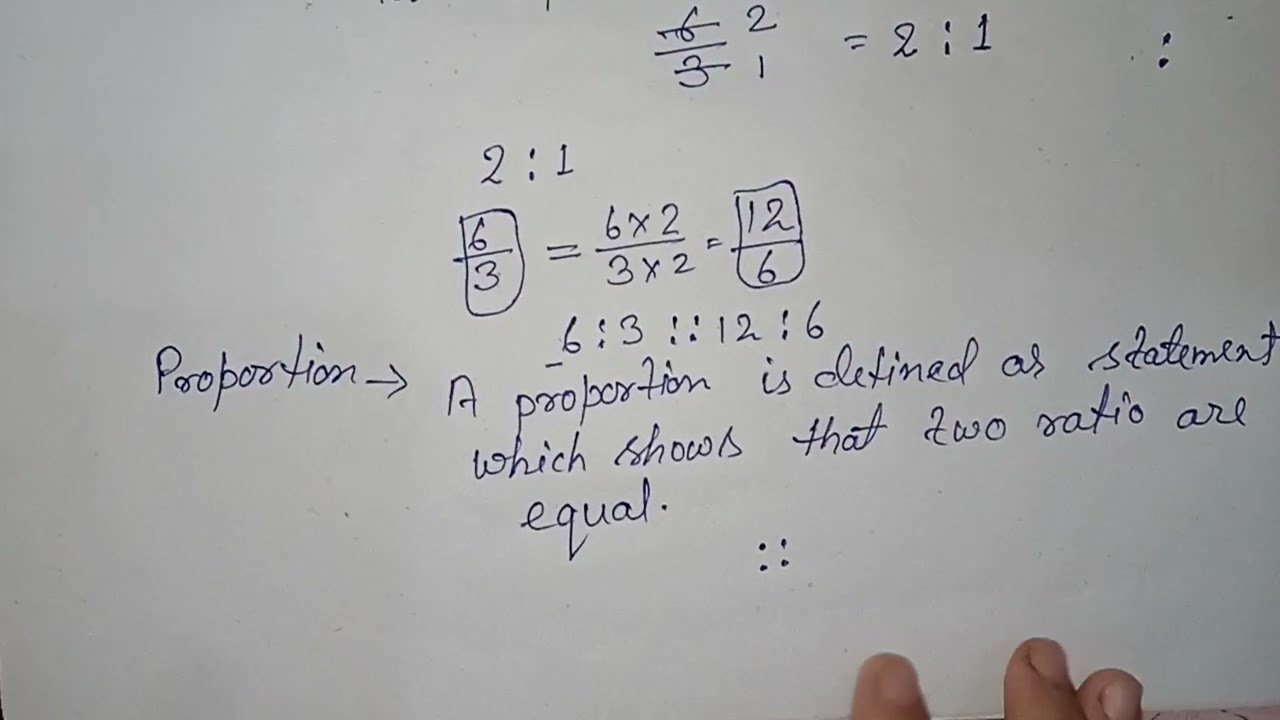 6/3 2/1 = 2 : 1 :
2 : 1
6/3 = 6×2/3×2 = 12/6
6 : 3 :: 12 : 6
Proportion → A proportion is defined as statement
which shows that two ratio are
equal.
::